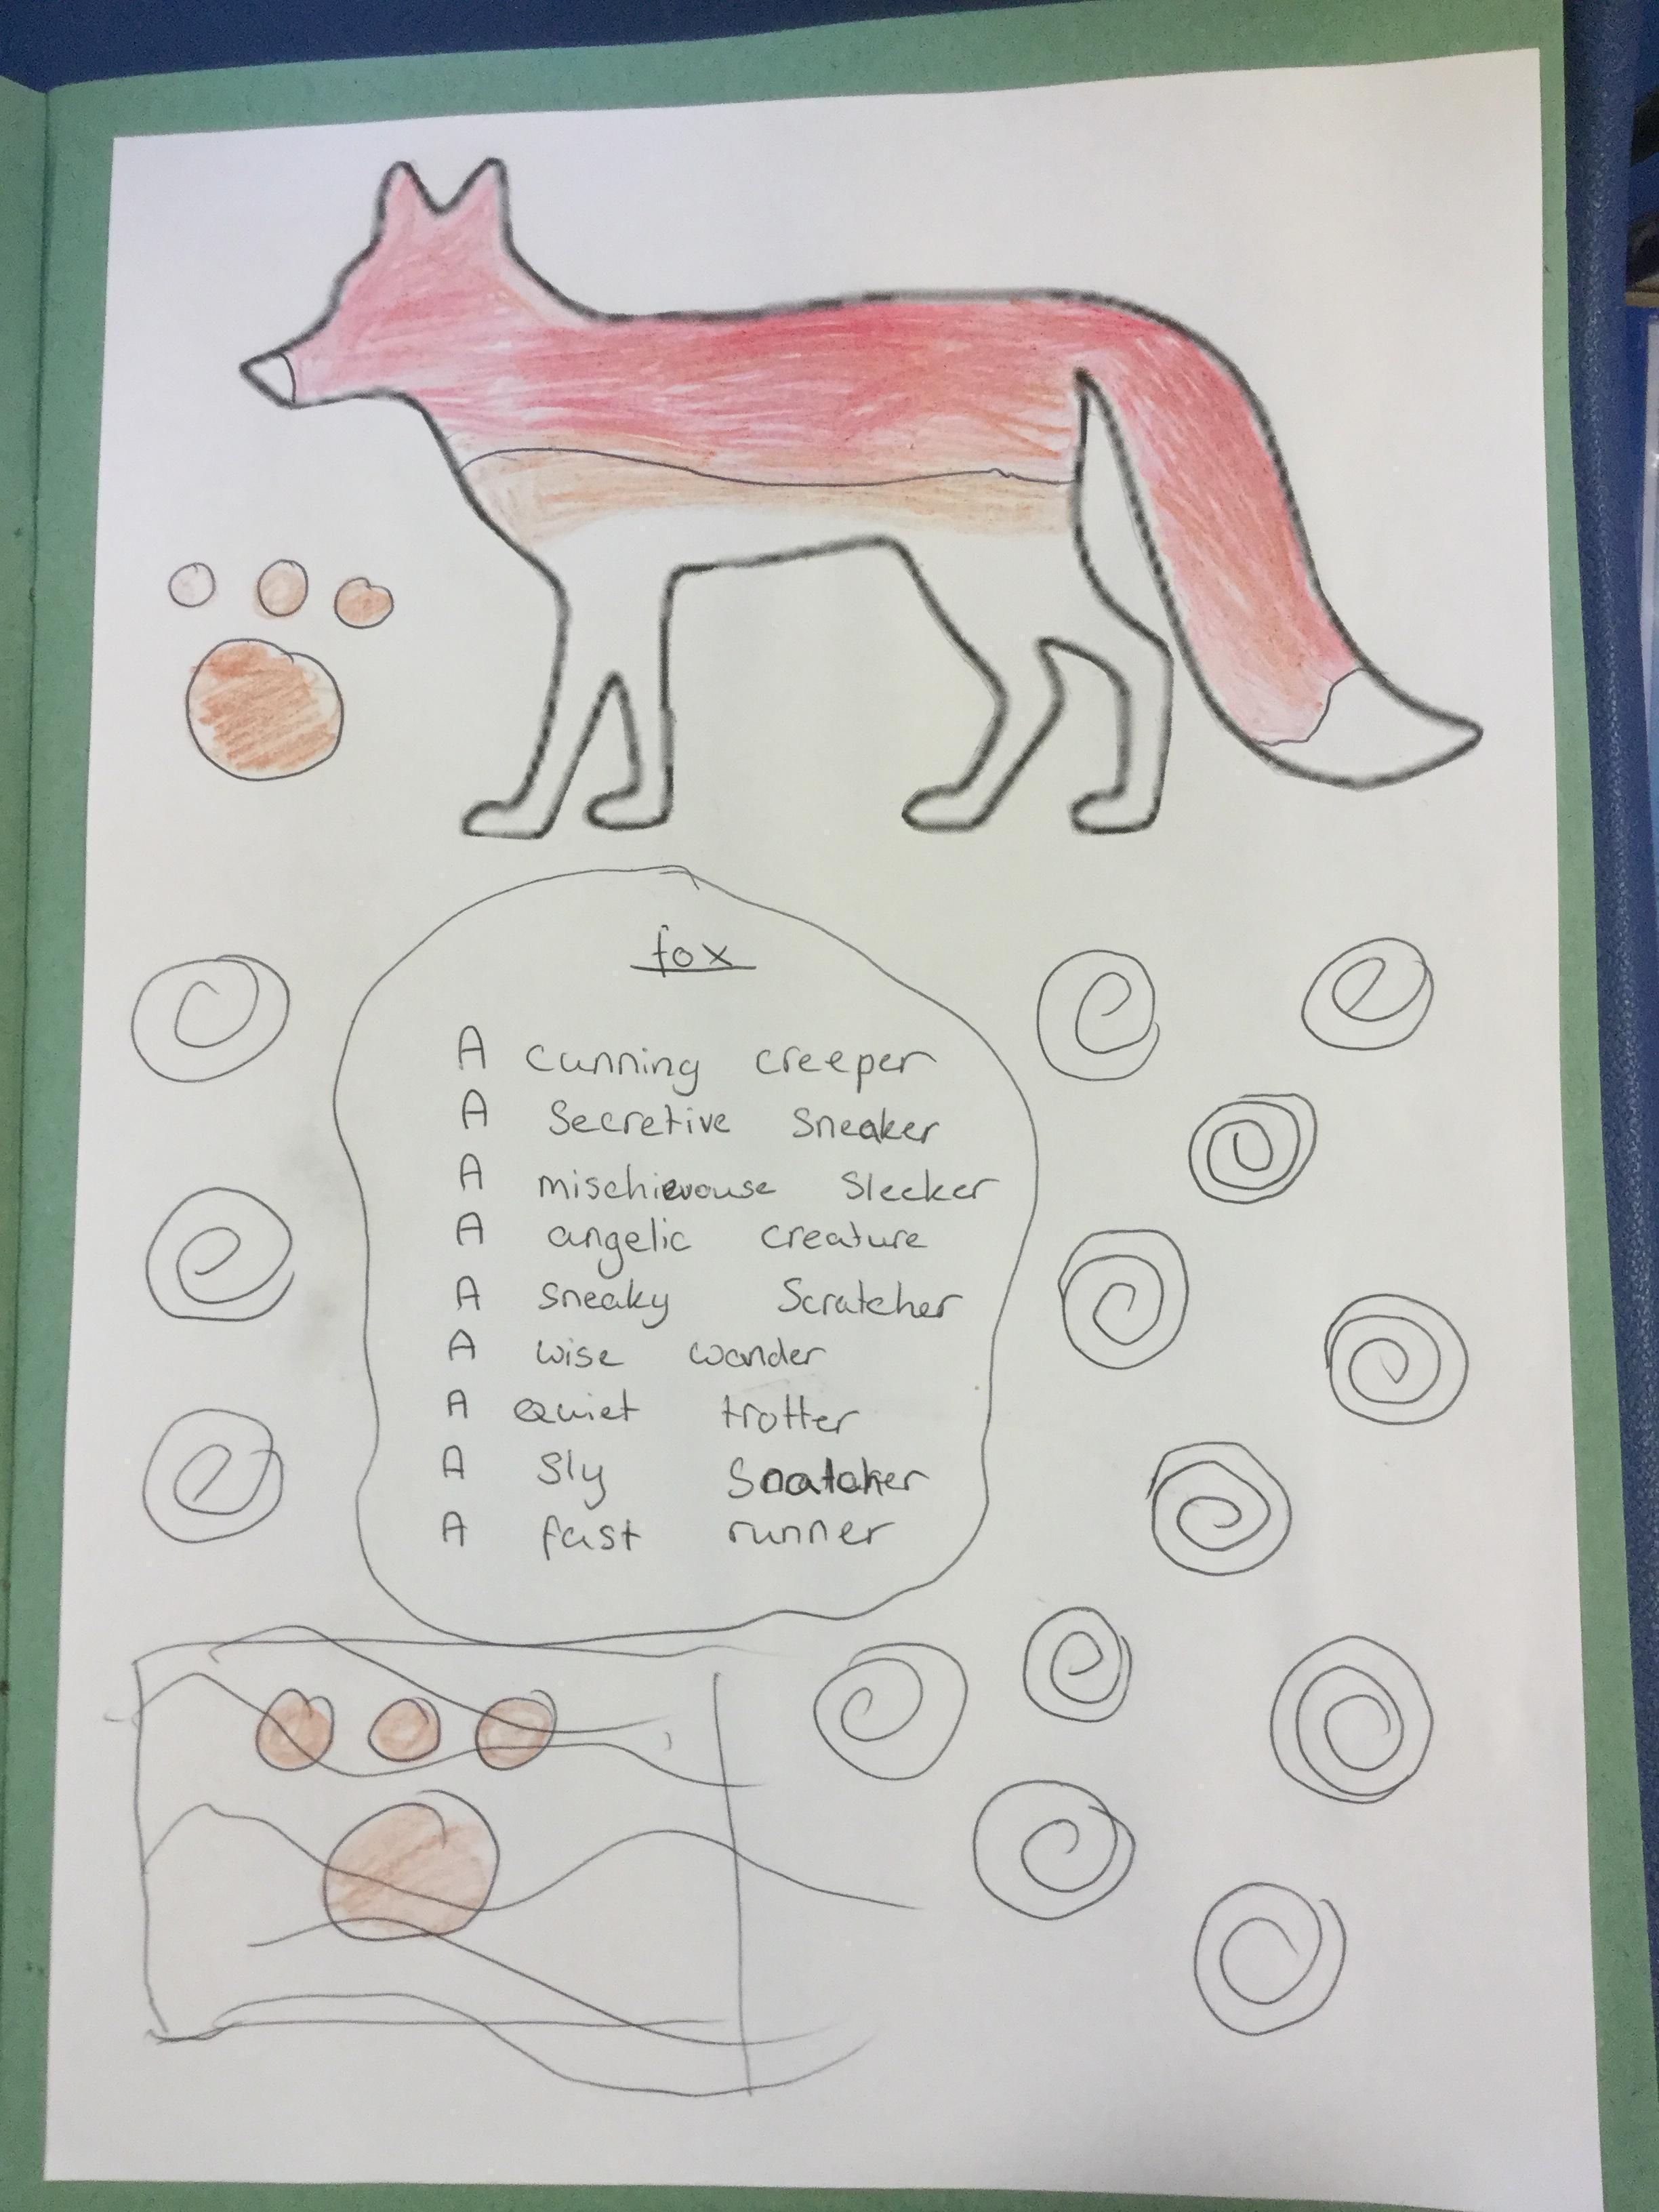 fox
A cunning creeper
A Secretive Sneaker
A mischievouse Sleeker
A angelic creature
A sneaky Scratcher
A wise wander
A Quiet trotter
A Sly Snatcher
A fast runner